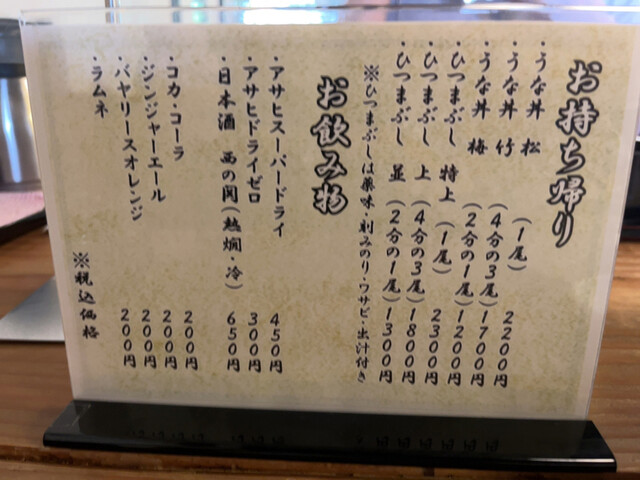 お持ち帰り
・うな丼 松 (1尾) 2200円
・うな丼 竹 (4分の3尾) 1700円
・うな丼 梅 (2分の1尾) 1200円
・ひつまぶし 特上 (1尾) 2300円
・ひつまぶし 上 (4分の3尾) 1800円
・ひつまぶし 並 (2分の1尾) 1300円
※ひつまぶしは薬味・刻みのり・ワサビ・出汁付き
お飲み物
・アサヒスーパードライ 450円
・アサヒドライゼロ 300円
・日本酒 西の関(熱燗・冷) 650円
・コカ・コーラ 200円
・ジンジャーエール 200円
・バヤリースオレンジ 200円
・ラムネ 200円
※税込価格